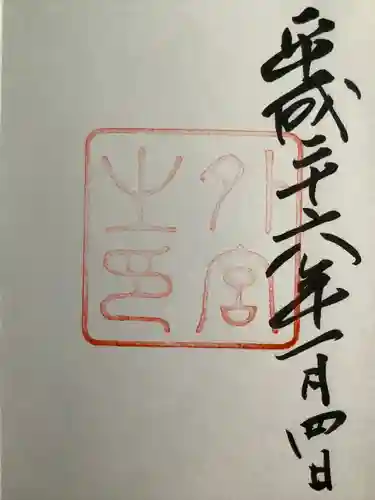 平成二十六年一月四日
外宮
之印